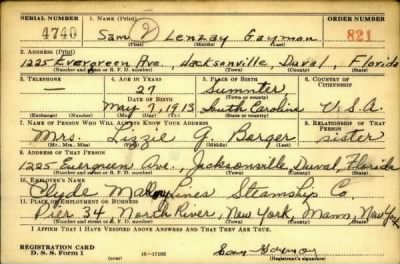 SERIAL NUMBER 1. NAME (Print) ORDER NUMBER
4740 Sam Lenzay Gaymon 821
(First) (Middle) (Last)
2. ADDRESS (Print)
1225 Evergreen Ave., Jacksonville, Duval, Florida
(Number and street or R. F. D. number) (Town) (County) (State)
3. TELEPHONE 4. AGE IN YEARS 5. PLACE OF BIRTH 6. COUNTRY OF CITIZENSHIP
— 27 Sumter
DATE OF BIRTH (Town or county)
May 7, 1913 South Carolina U.S.A.
(Exchange) (Number) (Mo.) (Day) (Yr.) (State or country)
7. NAME OF PERSON WHO WILL ALWAYS KNOW YOUR ADDRESS 8. RELATIONSHIP OF THAT PERSON
Mrs. Lizzie G. Barger sister
(Mr., Mrs., Miss) (First) (Middle) (Last)
9. ADDRESS OF THAT PERSON
1225 Evergreen Ave., Jacksonville, Duval, Florida
(Number and street or R. F. D. number) (Town) (County) (State)
10. EMPLOYER'S NAME
Clyde Mallory Lines Steamship Co.
11. PLACE OF EMPLOYMENT OR BUSINESS
Pier 34, North River, New York, New York
(Number and street or R. F. D. number) (Town) (County) (State)
I AFFIRM THAT I HAVE VERIFIED ABOVE ANSWERS AND THAT THEY ARE TRUE.
REGISTRATION CARD
D. S. S. Form 1 (over) 16—17105 Sam Gaymon
(Registrant's signature)